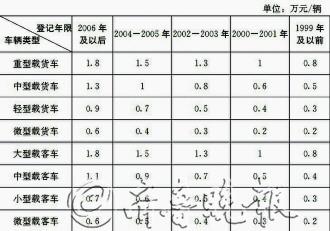 单位：万元/辆
登记年限 车辆类型 2006年及以后 2004—2005年 2002—2003年 2000—2001年 1999年及以前
重型载货车 1.8 1.5 1.3 1 0.8
中型载货车 1.3 1 0.8 0.6 0.5
轻型载货车 0.9 0.7 0.5 0.4 0.3
微型载货车 0.6 0.4 0.3 0.2 0.2
大型载客车 1.8 1.5 1.3 1 0.8
中型载客车 1.1 0.9 0.7 0.5 0.4
小型载客车 0.7 0.6 0.5 0.4 0.3
微型载客车 0.6 0.5 0.4 0.3 0.2
齐鲁晚报